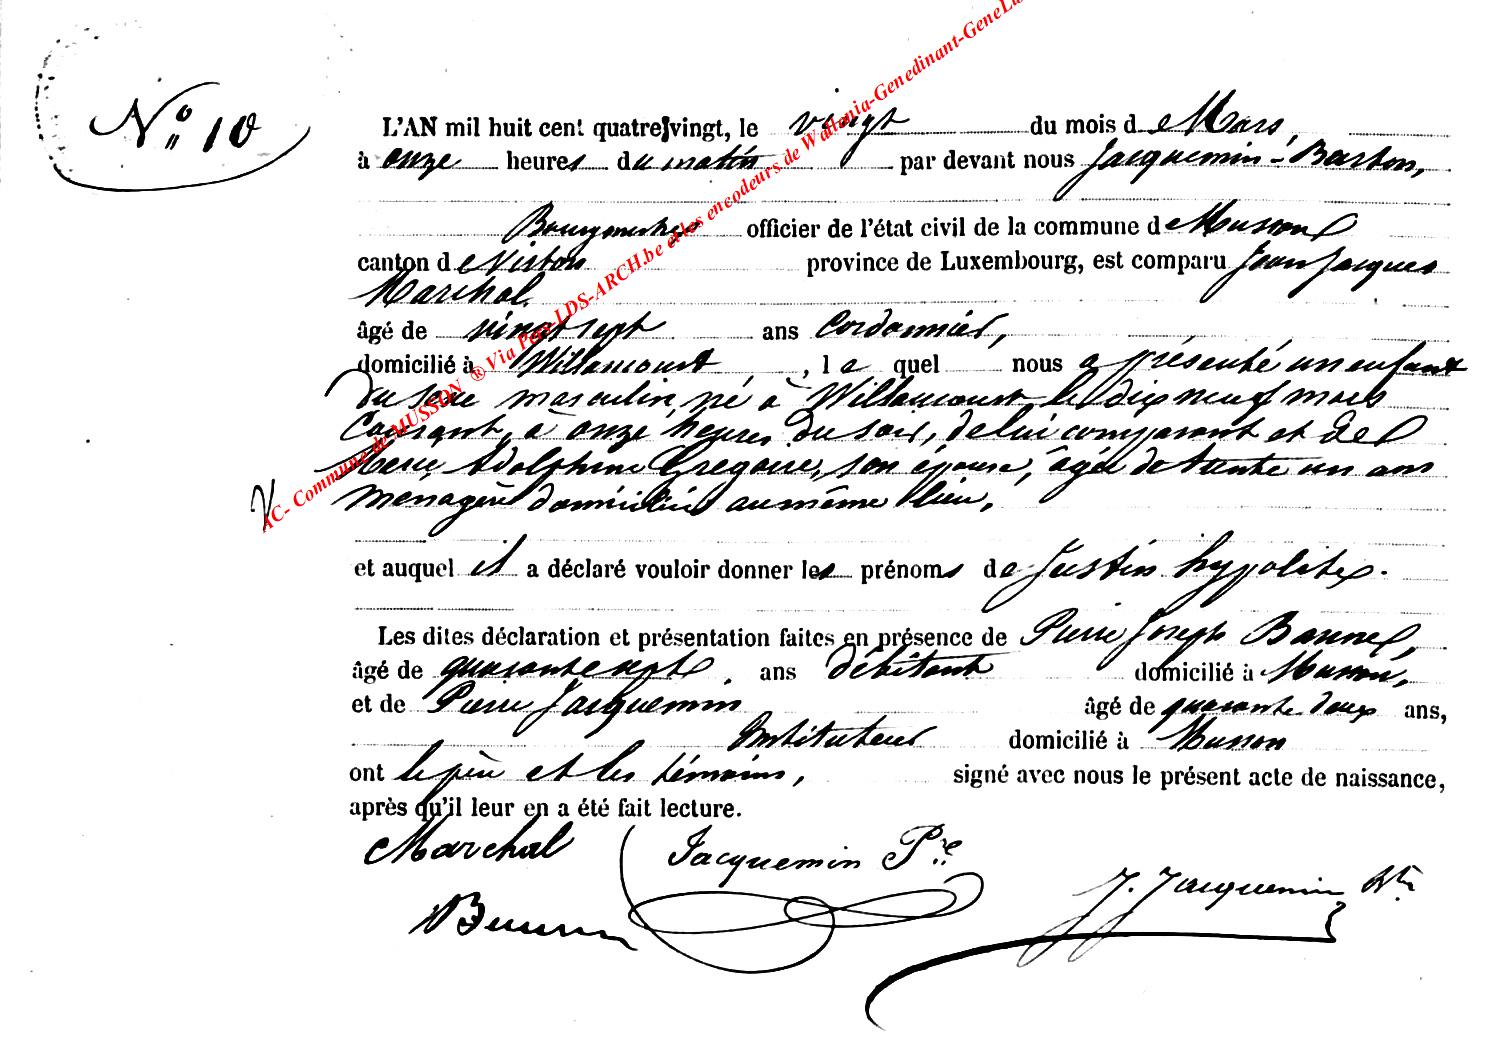 N° 10
L'AN mil huit cent quatre vingt, le vingt du mois de Mars,
à onze heures du matin par devant nous Jacquemin-Barton,
Bourgmestre officier de l'état civil de la commune de Musson
canton de Virton province de Luxembourg, est comparu Jean Jacques
Maréchal
âgé de vingt sept ans Cordonnier,
domicilié à Willancourt, le quel nous a présenté un enfant
du sexe masculin, né à Willancourt le dix neuf mois
courant, à onze heures du soir, de lui comparant et de
Marie Adolphine Gregoire, son épouse, âgée de trente un ans
menagère domiciliée au même lieu,
et auquel il a déclaré vouloir donner les prénoms de Justin hypolite.
Les dites déclaration et présentation faites en présence de Pierre Joseph
âgé de quarante sept, ans débitant domicilié à Musson,
et de Pierre Jacquemin âgé de quarante deux ans,
Instituteur domicilié à Musson
ont le père et les témoins, signé avec nous le présent acte de naissance,
après qu'il leur en a été fait lecture.
Marchal Jacquemin Pre
J. Jacquemin
AC- Commune de MUSSON ® Via Pers-LDS-ARCH.be et les encodeurs de Wallonia-Genedinant-GeneLu